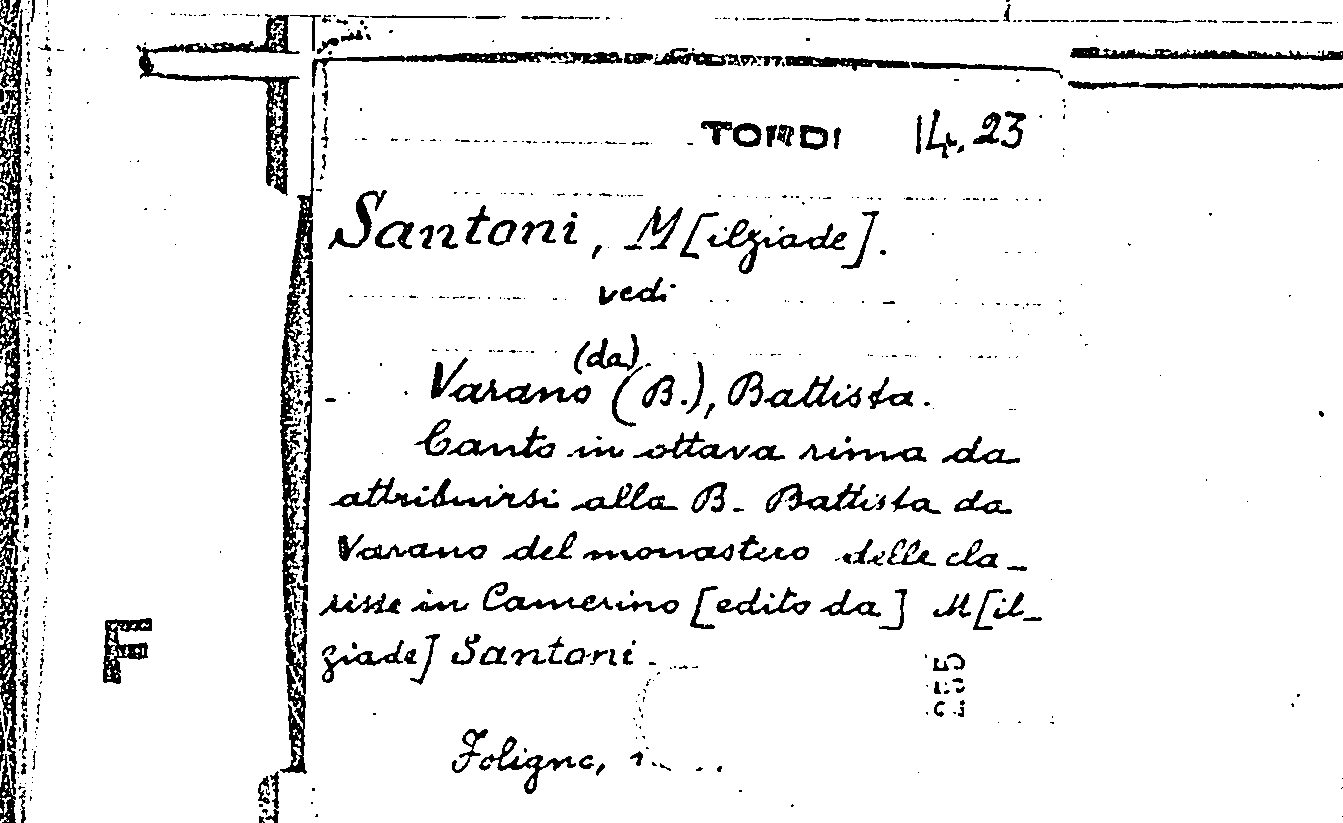 TORDI 14.23
Santoni, M[ilziade].
vedi
(da)
Varano (B.), Battista.
Canto in ottava rima da
attribuirsi alla B. Battista da
Varano del monastero delle cla-
risse in Camerino [edito da] M[il-
ziade] Santoni.
F
Foligno,